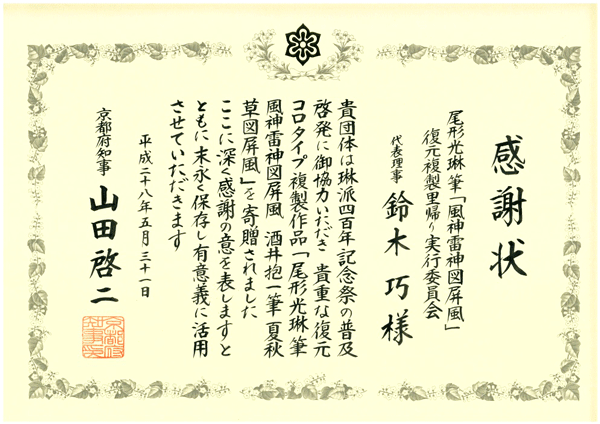 感謝状
尾形光琳筆「風神雷神図屏風」
復元複製里帰り実行委員会
代表理事 鈴木巧様
貴団体は琳派四百年記念祭の普及
啓発に御協力いただき 貴重な復元
コロタイプ複製作品「尾形光琳筆
風神雷神図屏風 酒井抱一筆 夏秋
草図屏風」を寄贈されました
ここに深く感謝の意を表しますと
ともに末永く保存し有意義に活用
させていただきます
平成二十八年五月三十一日
京都府知事 山田啓二